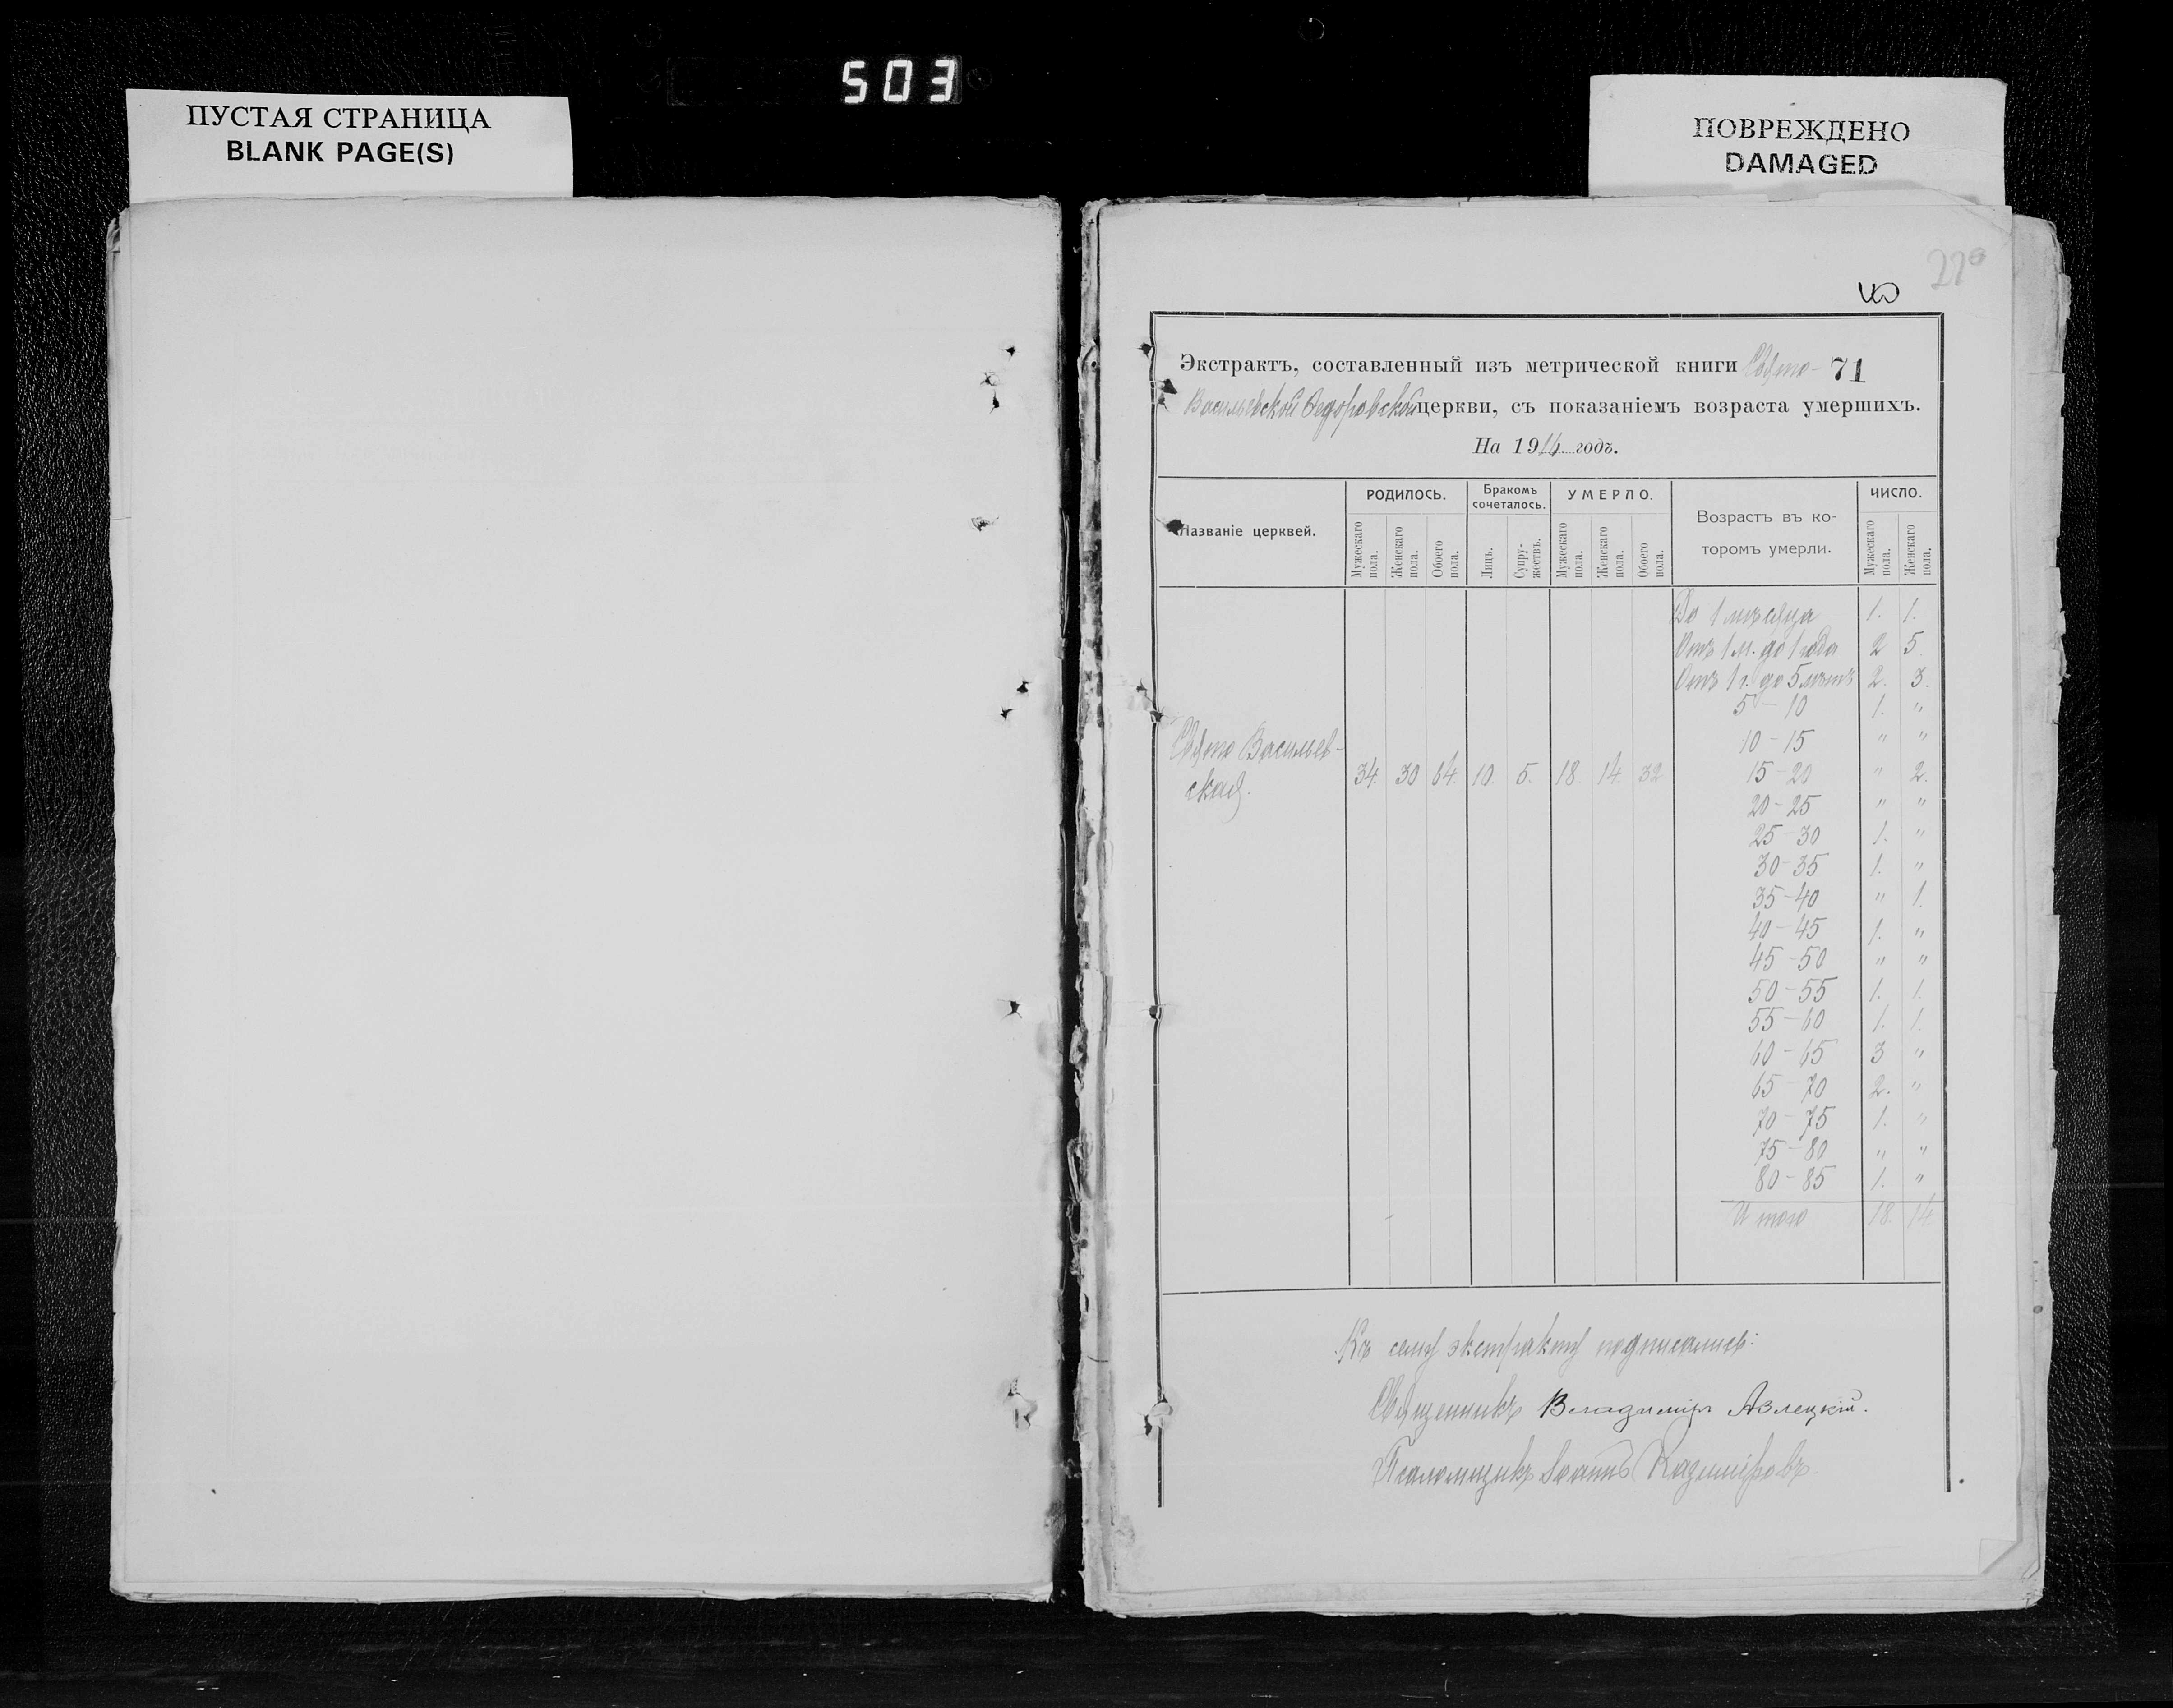 503
ПУСТАЯ СТРАНИЦА
BLANK PAGE(S)
ПОВРЕЖДЕНО
DAMAGED
220
Экстрактъ, составленный изъ метрической книги Свято- 71
Васильевской Федоровской церкви, съ показаніемъ возраста умершихъ.
На 1914 годъ.
Названіе церквей.
РОДИЛОСЬ.
Мужескаго пола.
Женскаго пола.
Обоего пола.
Бракомъ сочеталось.
Лицъ.
Супружествъ.
УМЕРЛО.
Мужескаго пола.
Женскаго пола.
Обоего пола.
Возрастъ въ ко-
торомъ умерли.
ЧИСЛО.
Мужескаго пола.
Женскаго пола.
До 1 мѣсяца 1. 1.
Отъ 1 м. до 1 года 2 5.
Отъ 1 г. до 5 лѣтъ 2. 3.
5 - 10 1. "
10 - 15 " "
Свято Васильев-
ская. 34. 30 64. 10. 5. 18. 14. 32
15 - 20 " 2.
20 - 25 " "
25 - 30 1. "
30 - 35 1. "
35 - 40 " 1.
40 - 45 1. "
45 - 50 " "
50 - 55 1. 1.
55 - 60 1. 1.
60 - 65 3 "
65 - 70 2. "
70 - 75 1. "
75 - 80 " "
80 - 85 1. "
Итого 18. 14
Къ сему экстракту подписались:
Священникъ Владиміръ Азлецкій.
Псаломщикъ Іоаннъ Казиміровъ